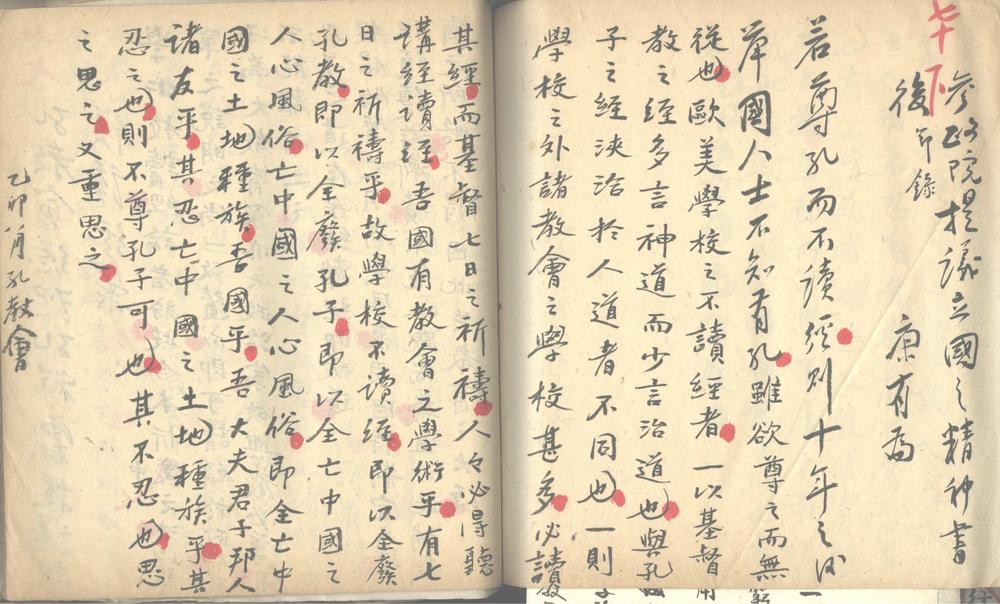 七十下
參政院提議立國之精神書
後 節錄 康有為
若尊孔而不讀經則十年之後
舉國人士不知有孔雖欲尊之而無
從也歐美學校之不讀經者一以基督
教之經多言神道而少言治道也與孔
子之經浹洽於人道者不同也一則
學校之外諸教會之學校甚多必讀
其經而基督七日之祈禱人々必得聽
講經讀經吾國有教會之學術乎有七
日之祈禱乎故學校不讀經即以全廢
孔教即以全廢孔子即以全亡中國之
人心風俗亡中國之人心風俗即全亡中
國之土地種族吾國乎吾大夫君子邦人
諸友乎其忍亡中國之土地種族乎其
忍之也則不尊孔子可也其不忍也思
之思之又重思之
乙卯八月孔教會